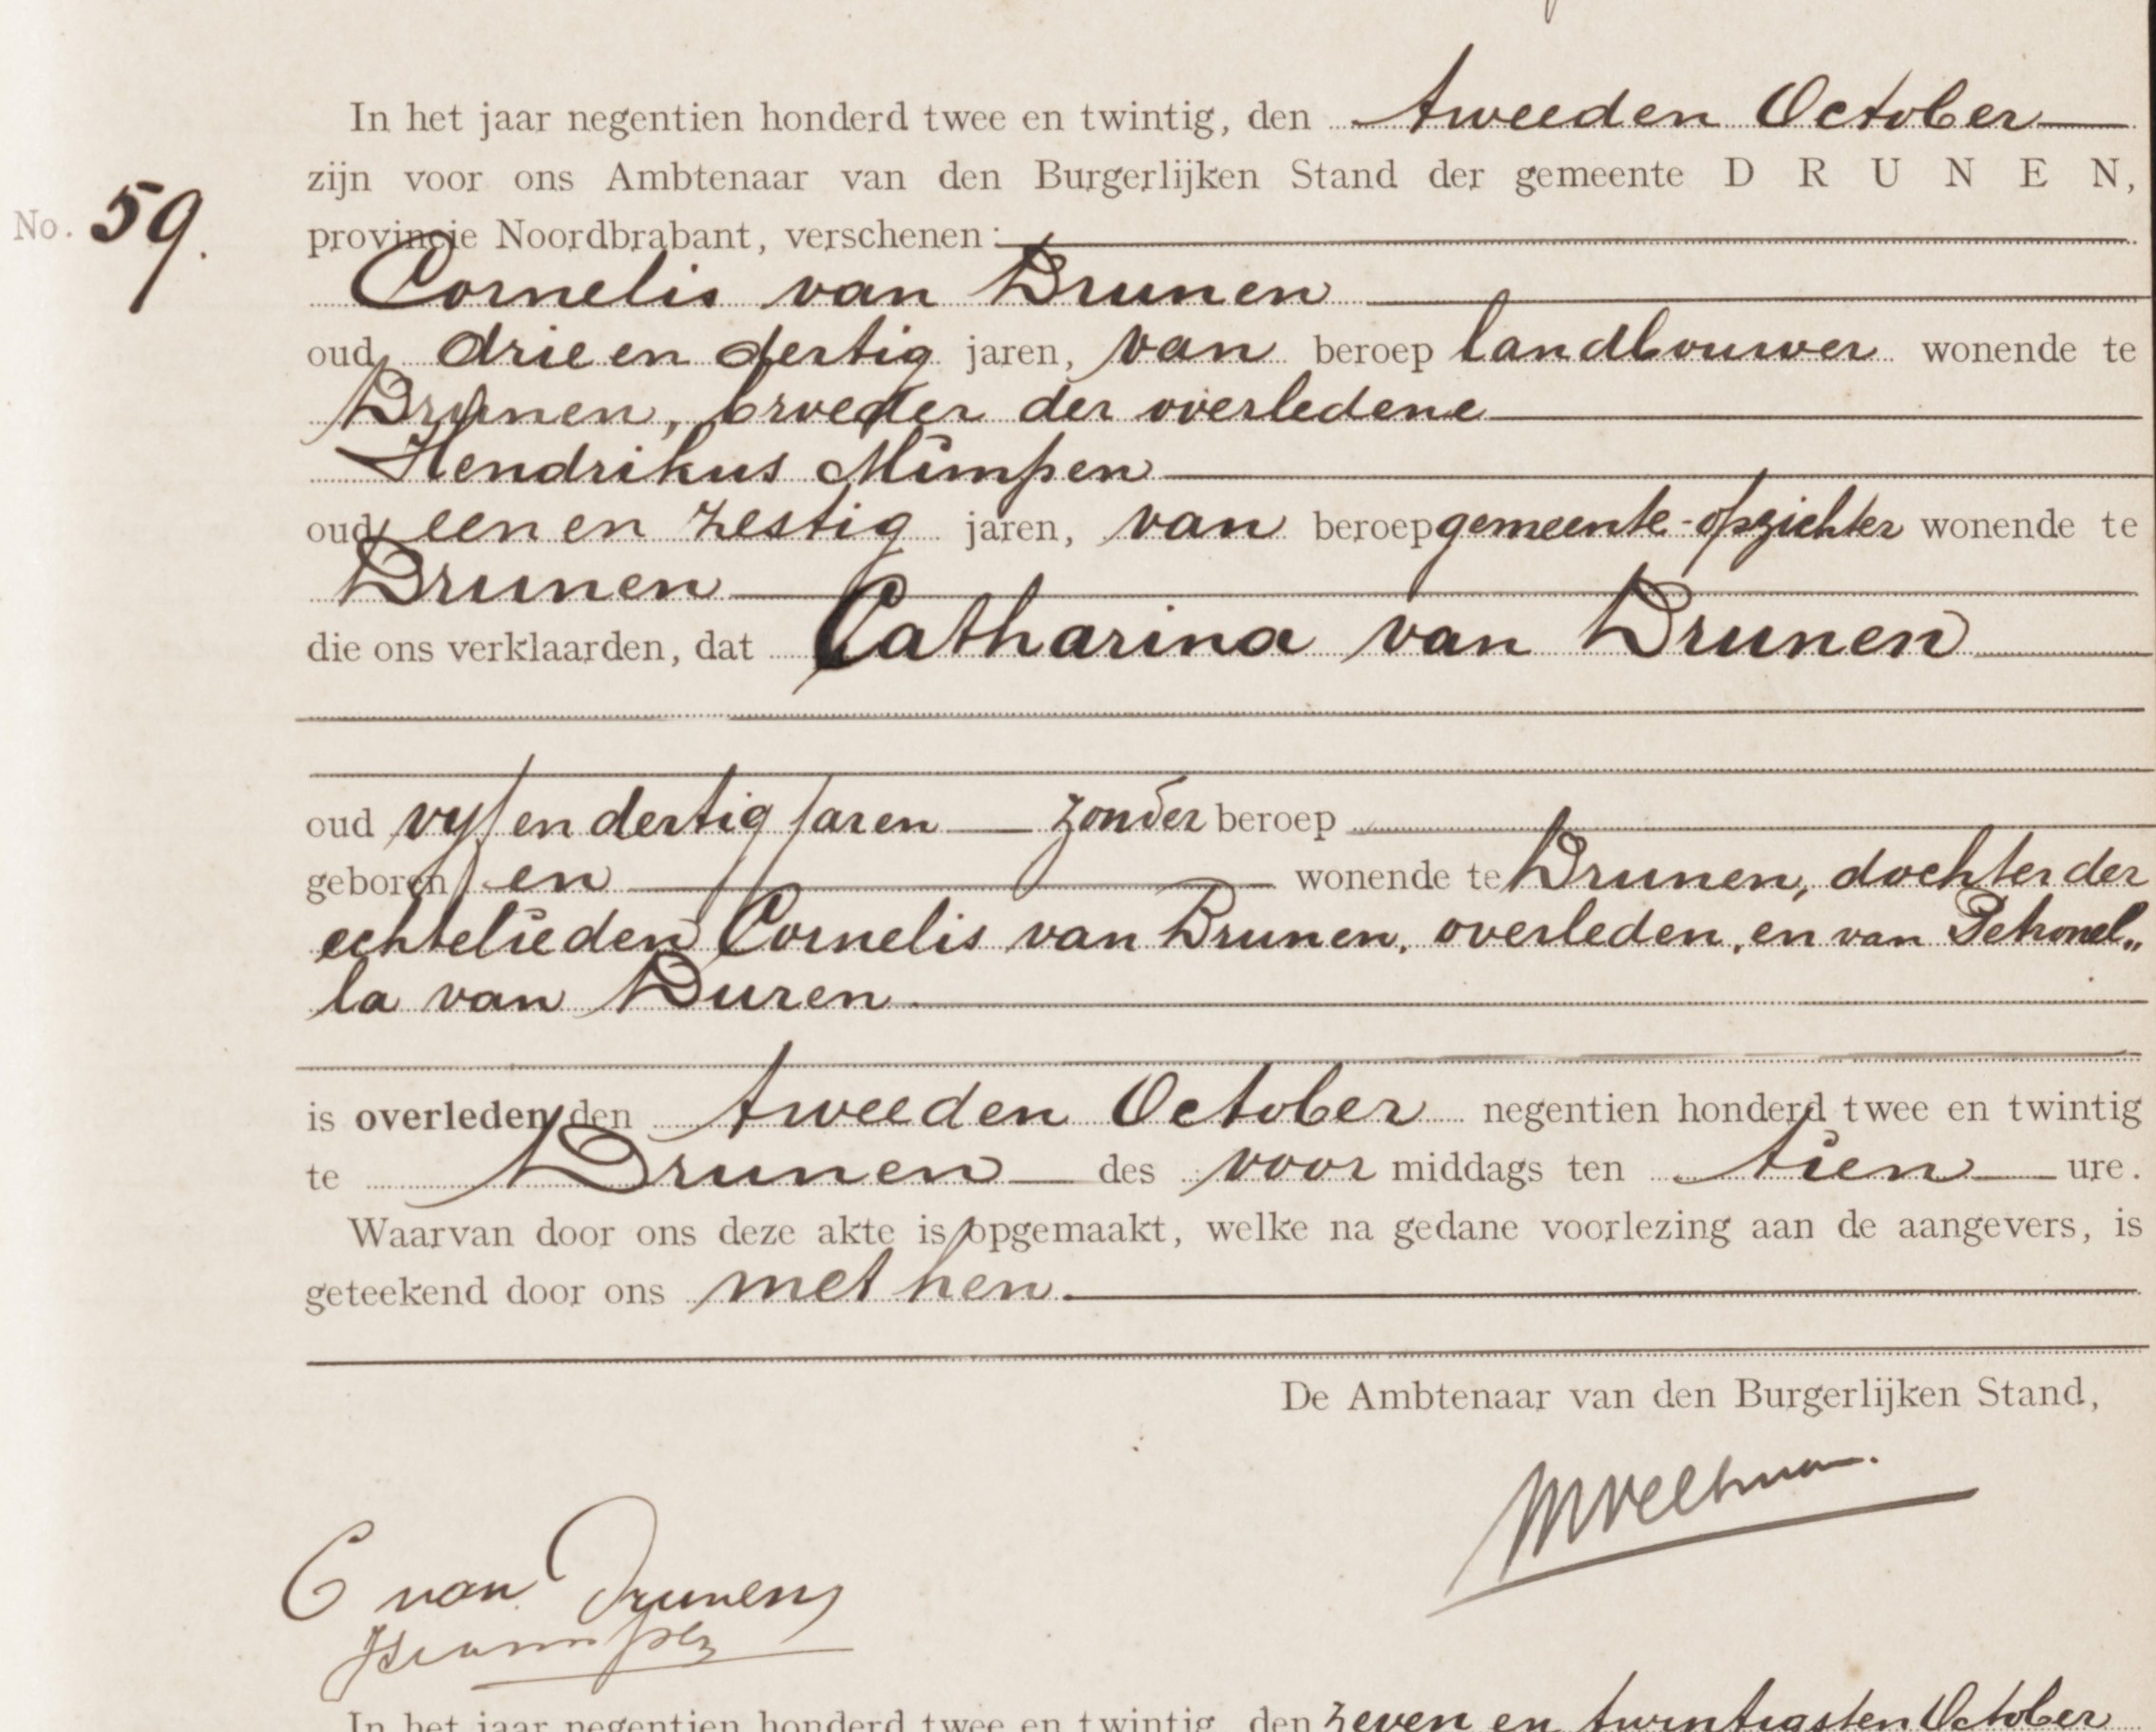 In het jaar negentien honderd twee en twintig, den tweeden October
zijn voor ons Ambtenaar van den Burgerlijken Stand der gemeente DRUNEN,
No. 59.
provincie Noordbrabant, verschenen:
Cornelis van Drunen
oud drie en dertig jaren, van beroep landbouwer wonende te
Drunen, broeder der overledene
Hendrikus Mimpen
oud een en zestig jaren, van beroep gemeente-opzichter wonende te
Drunen
die ons verklaarden, dat Catharina van Drunen
oud vijf en dertig jaren zonder beroep
geboren en wonende te Drunen, dochter der
echtelieden Cornelis van Drunen, overleden, en van Petronel„
la van Duren
is overleden den tweeden October negentien honderd twee en twintig
te Drunen des voor middags ten tien ure.
Waarvan door ons deze akte is opgemaakt, welke na gedane voorlezing aan de aangevers, is
geteekend door ons met hen.
De Ambtenaar van den Burgerlijken Stand,
C van Drunen
In het jaar negentien honderd twee en twintig, den zeven en twintigsten October